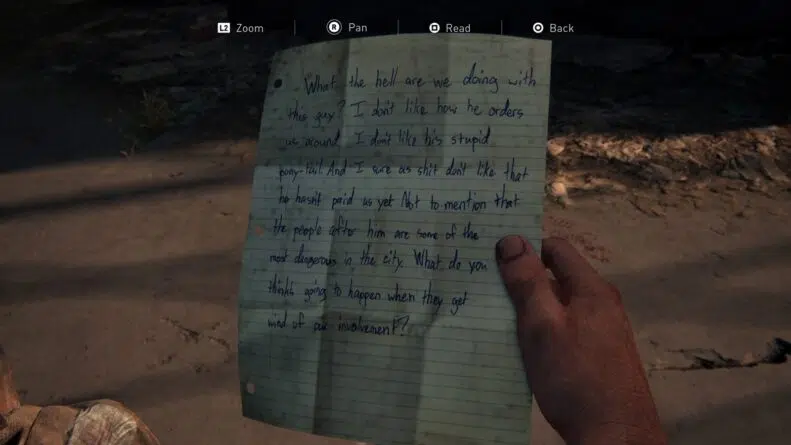 L2 Zoom R Pan Read Back
What the hell are we doing with
this guy? I don't like how he orders
us around. I don't like his stupid
pony-tail. And I sure as shit don't like that
he hasn't paid us yet. Not to mention that
the people after him are some of the
most dangerous in the city. What do you
think's going to happen when they get
wind of our involvement?